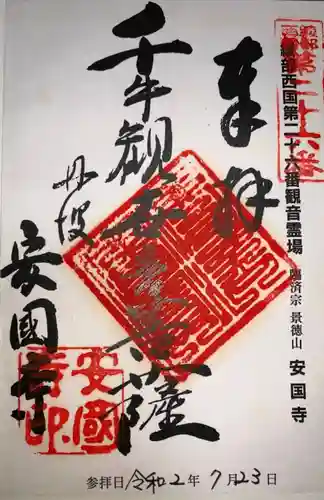 綾部西国第二十六番観音霊場 臨済宗 景徳山 安国寺
第二十六番
奉拝
千手観世音菩薩
丹波
安國寺
安國寺印
参拝日 令和2年 7月23日